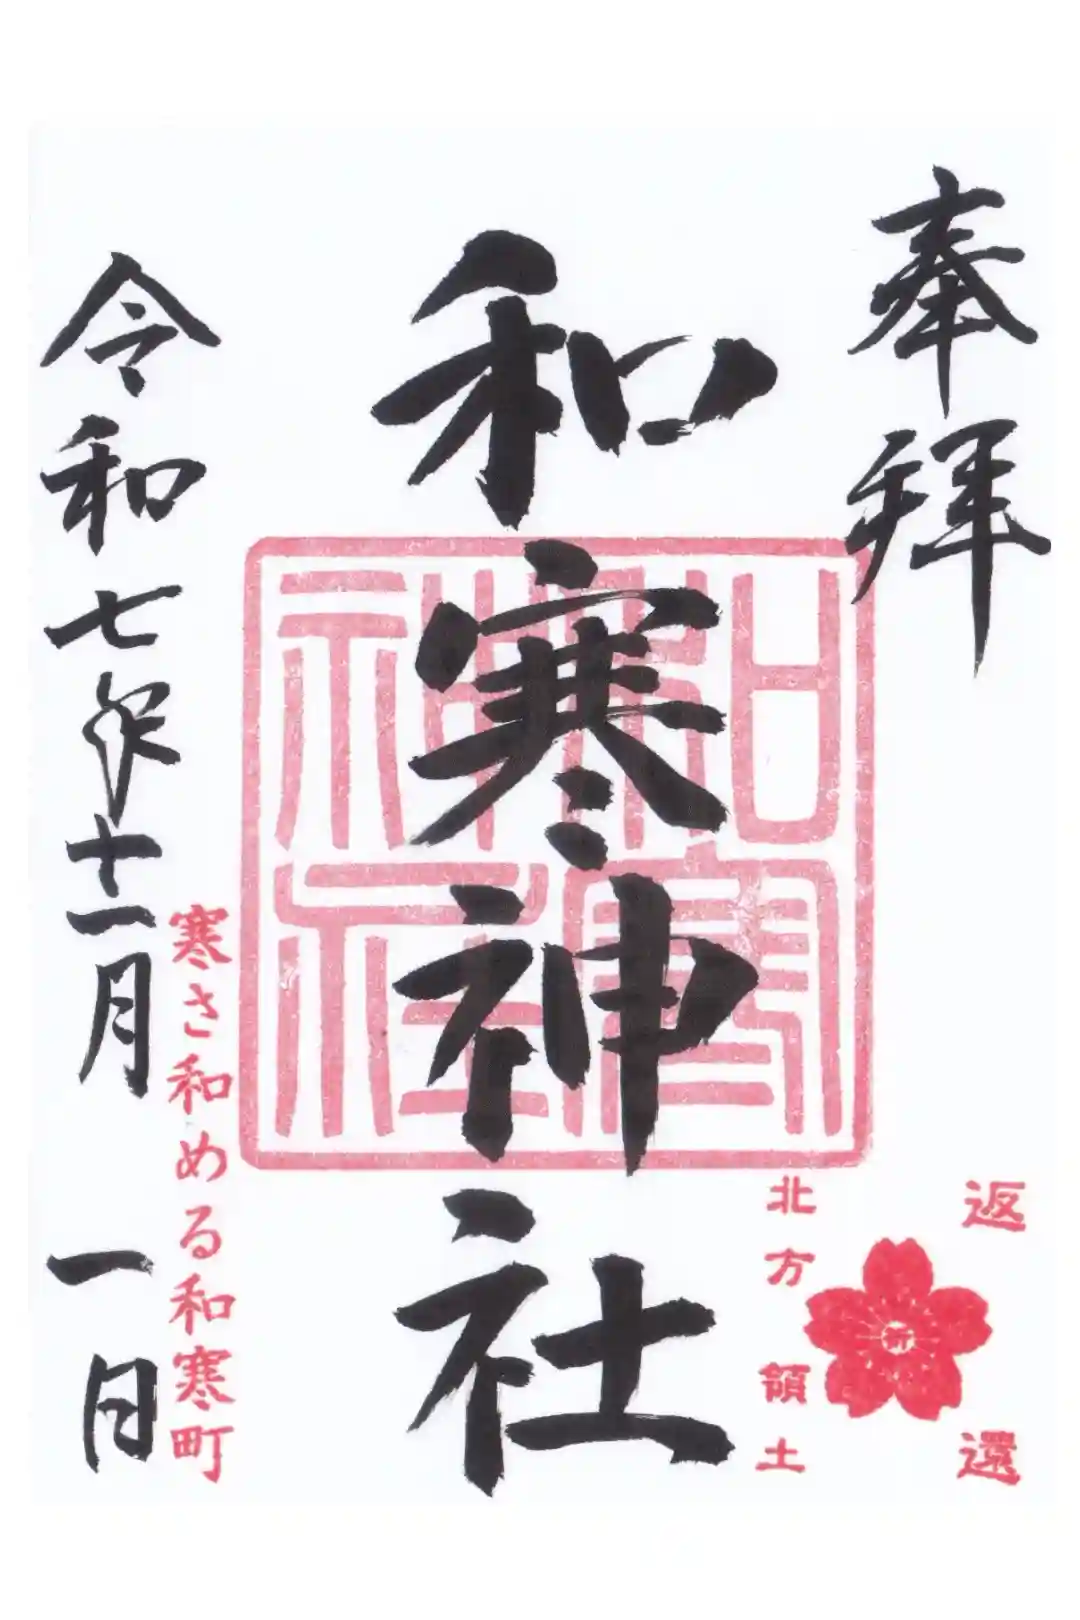 奉拝
和寒神社
和寒
神社
祈
返還
北方領土
寒さ和める和寒町
令和七年十一月一日